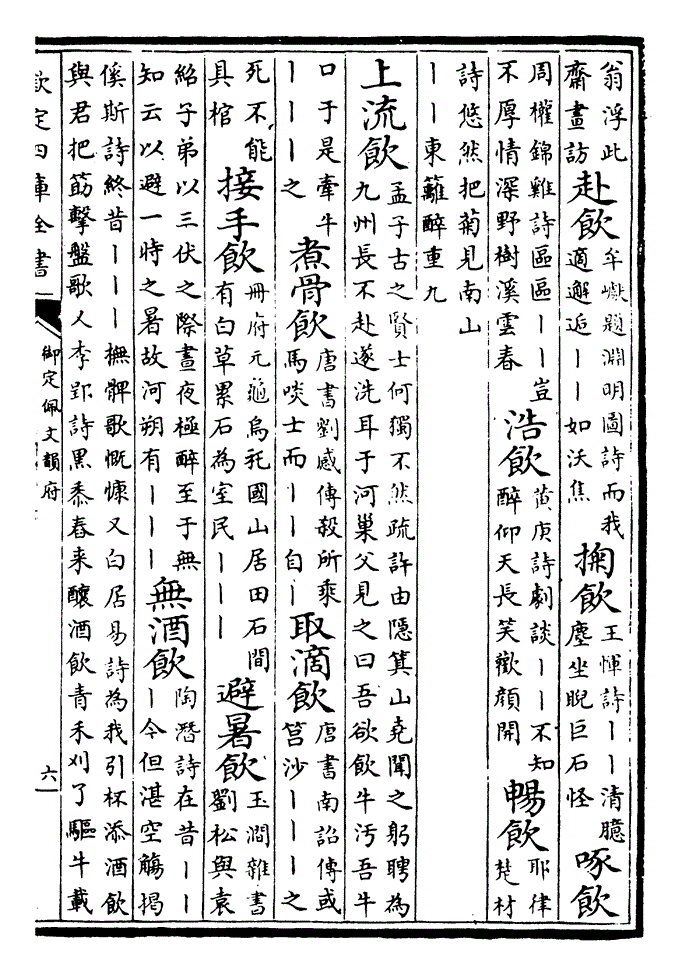 翁浮此
齋畫訪
赴飲
牟巘題淵明圖詩而我
適邂逅丨丨如沃焦
掬飲
王惲詩丨丨清臆
塵坐睨巨石怪
啄飲
周權錦雞詩區區丨丨豈
不厚情深野樹溪雲春
浩飲
黄庚詩劇談丨丨不知
醉仰天長笑歡顔開
暢飲
耶律
楚材
詩悠然把菊見南山
丨丨東籬醉重九
上流飲
孟子古之賢士何獨不然疏許由隱箕山堯聞之躬聘為
九州長不赴遂洗耳于河巢父見之曰吾欲飲牛汚吾牛
口于是牽牛
丨丨丨之
煮骨飲
唐書劉感傳殺所乘
馬啖士而丨丨自丨
取滴飲
唐書南詔傳或
筥沙丨丨丨之
死不能
具棺
接手飲
冊府元龜烏秅國山居田石間
有白草累石為室民丨丨丨
避暑飲
玉澗雜書
劉松與袁
紹子弟以三伏之際晝夜極醉至于無
知云以避一時之暑故河朔有丨丨丨
無酒飲
陶潛詩在昔丨丨
丨今但湛空觴揭
傒斯詩終昔丨丨丨撫髀歌慨慷又白居易詩為我引杯添酒飲
與君把筯擊盤歌人李郢詩黒黍舂来釀酒飲青禾刈了驅牛載
欽定四庫全書
御定佩文韻府
六